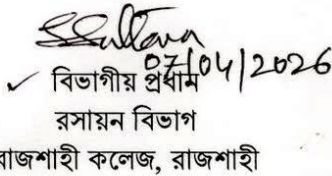 SSultana
07/04/2026
বিভাগীয় প্রধান
রসায়ন বিভাগ
রাজশাহী কলেজ, রাজশাহী